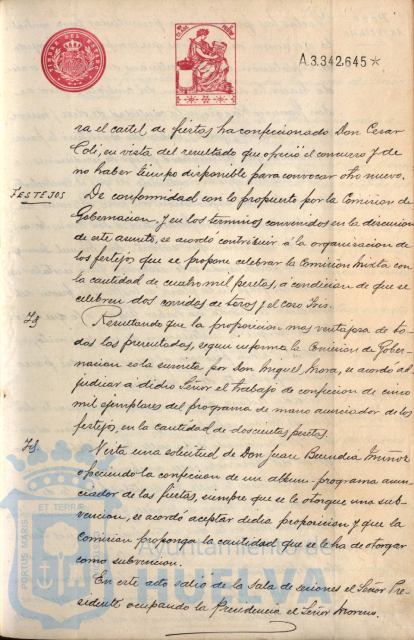 A.3.342.645*
ra el cartel de fiestas ha confeccionado Don Cesar
en vista del resultado que ofreció el concurso y de
no haber tiempo disponible para convocar otro nuevo.
FESTEJOS
De conformidad con lo propuesto por la Comision de
Gobernacion, y en los terminos convenidos en la discusion
de este asunto, se acordó contribuir á la organizacion de
los festejos que se propone celebrar la Comision mixta con
la cantidad de cuatro mil pesetas, á condicion de que se
celebren dos corridas de toros y el coso Iris.
Id
Resultando que la proposicion mas ventajosa de to-
das las presentadas, segun informa la Comision de Gober-
nacion es la suscrita por Don Miguel Mora, se acordó ad-
judicar á dicho Señor el trabajo de confeccion de cinco
mil ejemplares del programa de mano anunciador de los
festejos, en la cantidad de doscientas pesetas.
Id.
Vista una solicitud de Don Juan Buendia Muñoz
ofreciendo la confeccion de un album-programa anun-
ciador de las fiestas, siempre que se le otorgue una sub-
vencion, se acordó aceptar dicha proposicion y que la
Comision proponga la cantidad que se le ha de otorgar
como subvencion.
En este acto salió de la Sala de sesiones el Señor Pre-
sidente ocupando la Presidencia el Señor Moreno.
PORTUS MARIS
ET TERRAE
Ayuntamiento de
HUELVA